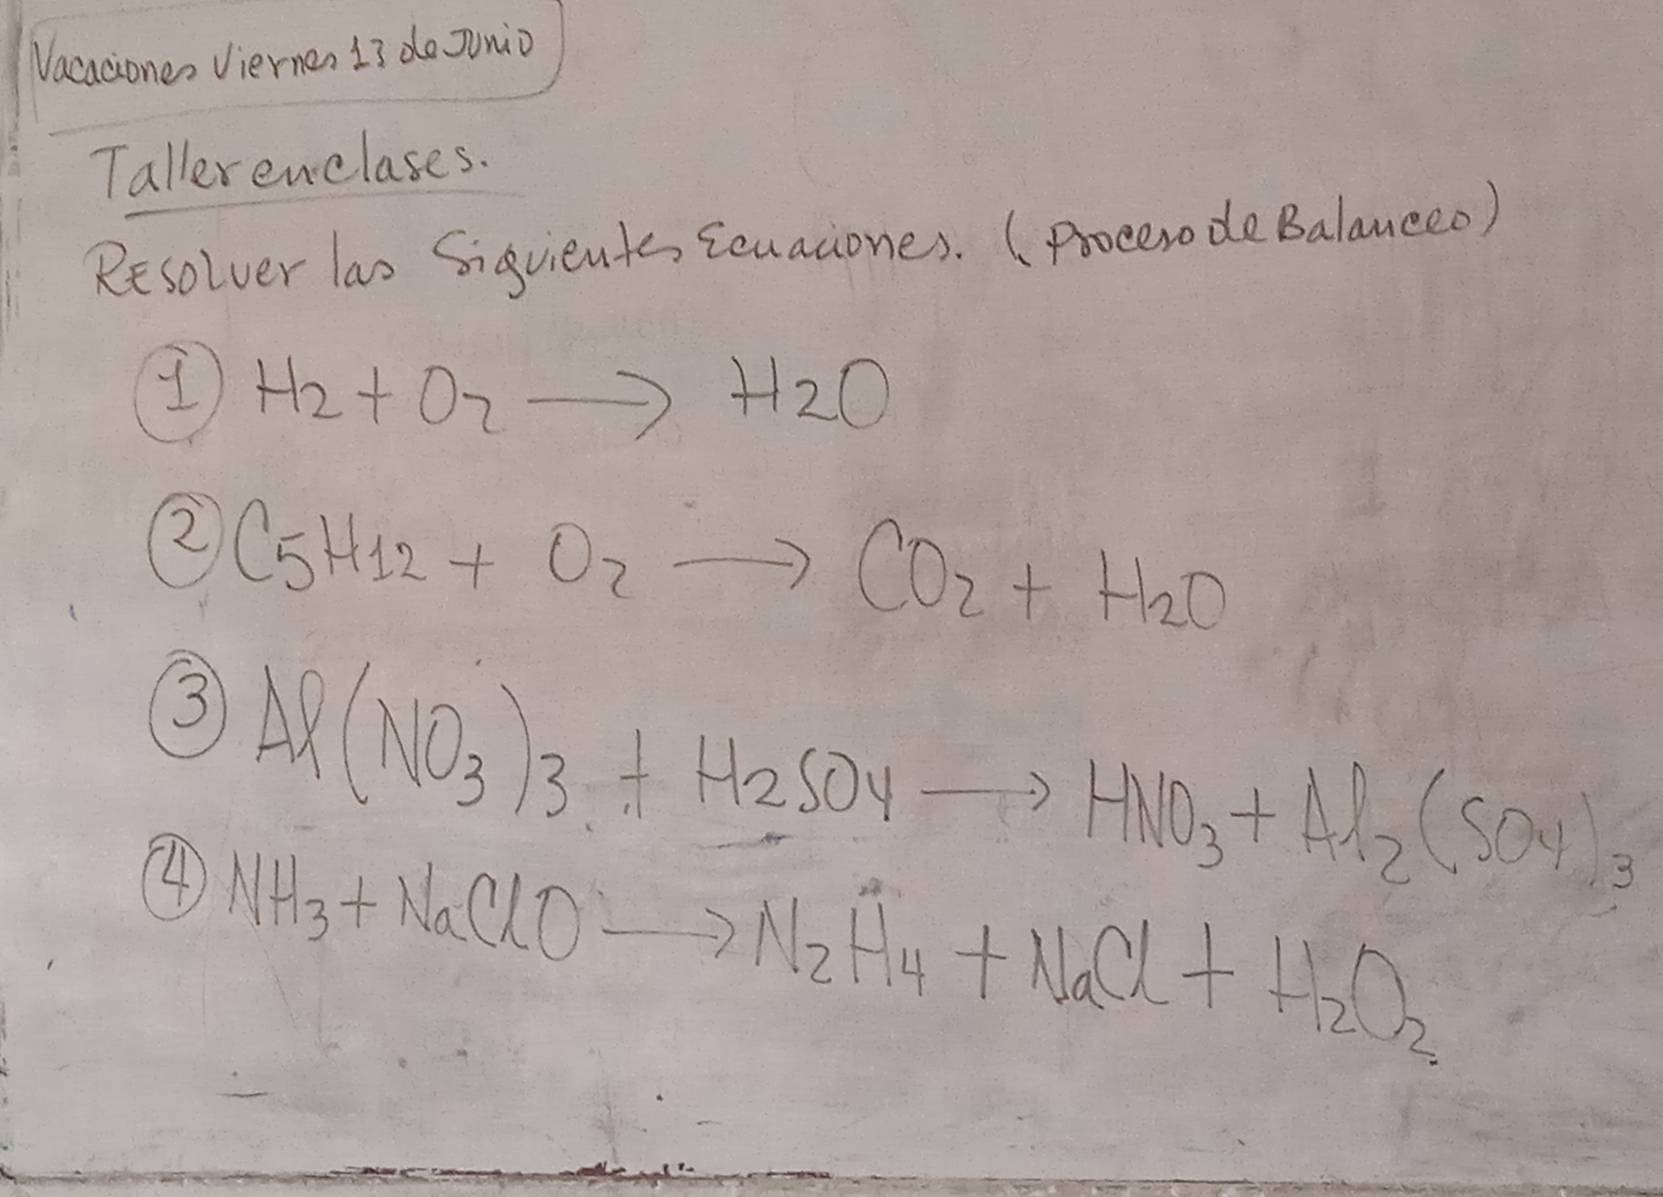 Vacaciones Viernes 13 de Junio
Taller en clases.
Resolver las Siguientes Ecuaciones. (Proceso de Balanceo)
① H2 + O2 → H2O
② C5H12 + O2 → CO2 + H2O
③ Al(NO3)3 + H2SO4 → HNO3 + Al2(SO4)3
④ NH3 + NaClO → N2H4 + NaCl + H2O2.